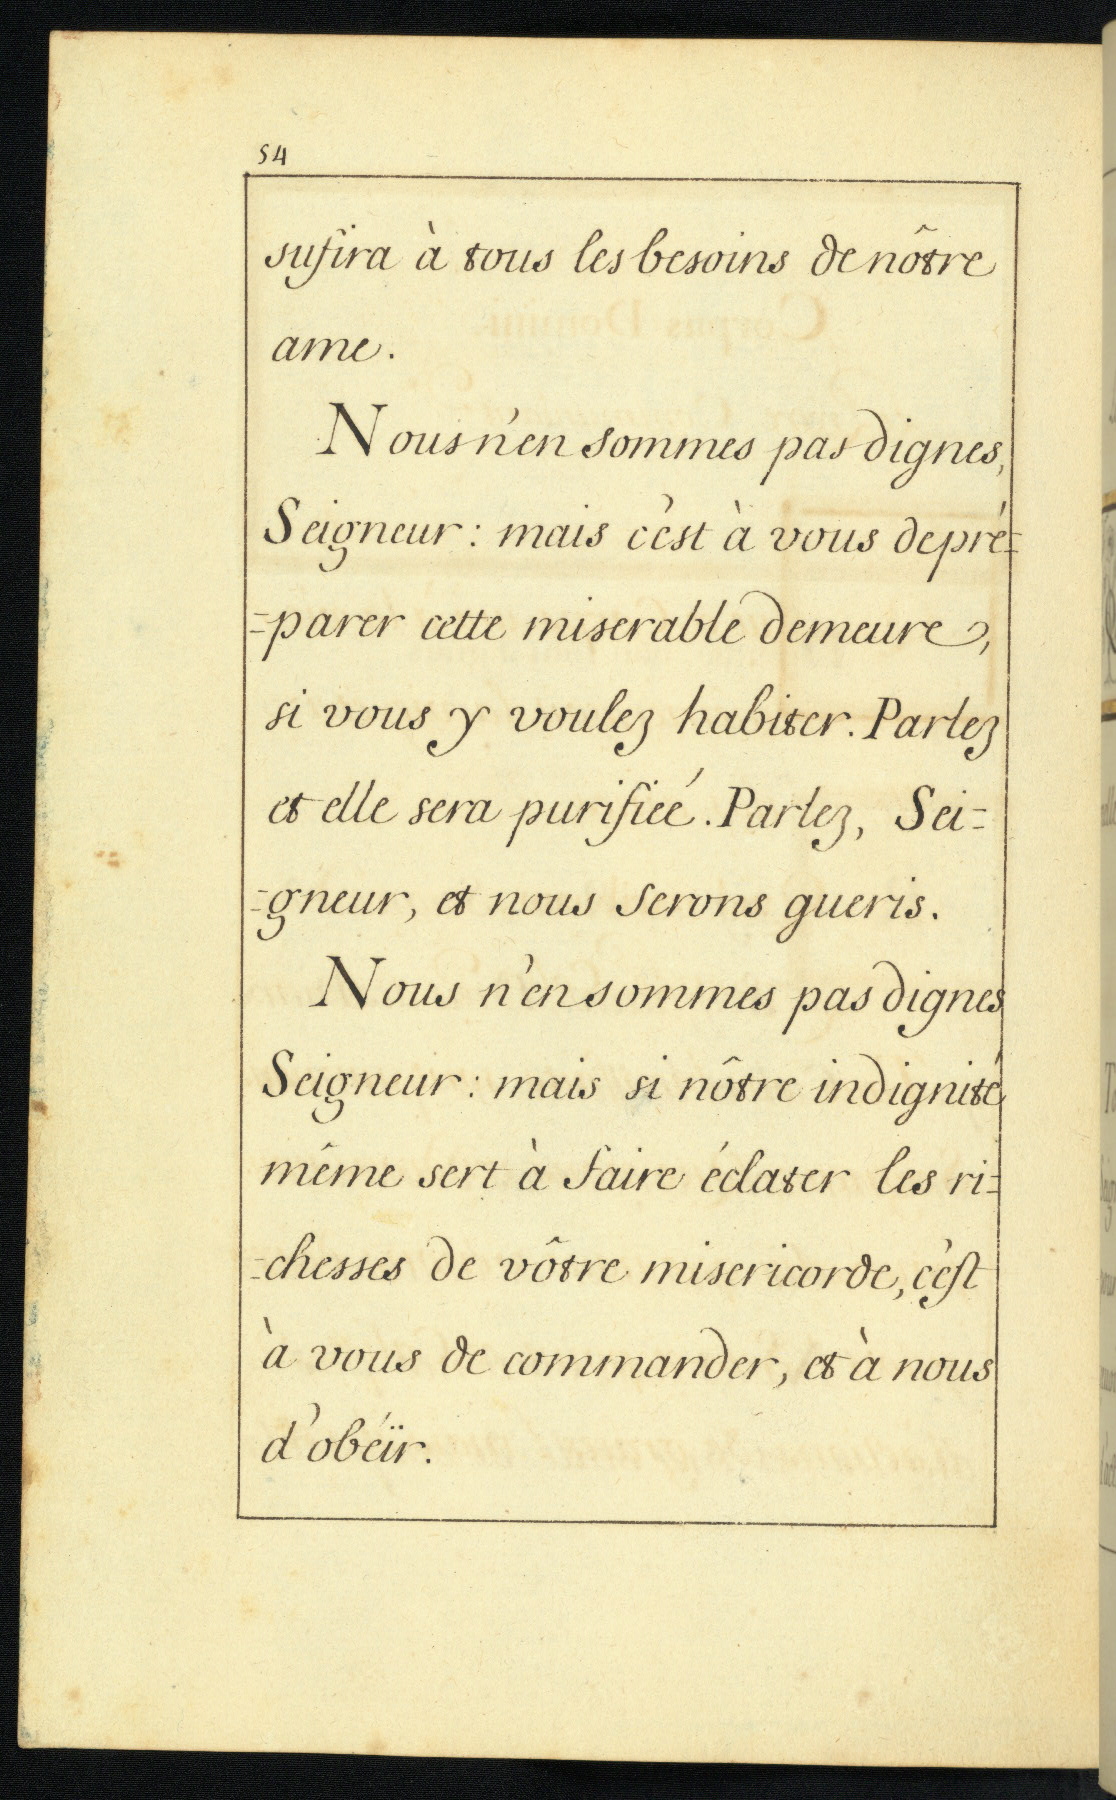 54
sufira à tous les besoins de nôtre
ame.
Nous n'en sommes pas dignes,
Seigneur : mais c'est à vous de pré=
=parer cette miserable demeure,
si vous y voulez habiter. Parlez
et elle sera purifieé. Parlez, Sei=
=gneur, et nous serons gueris.
Nous n'en sommes pas dignes
Seigneur : mais si nôtre indignité
même sert à faire éclater les ri=
=chesses de vôtre misericorde, c'est
à vous de commander, et à nous
d'obéïr.